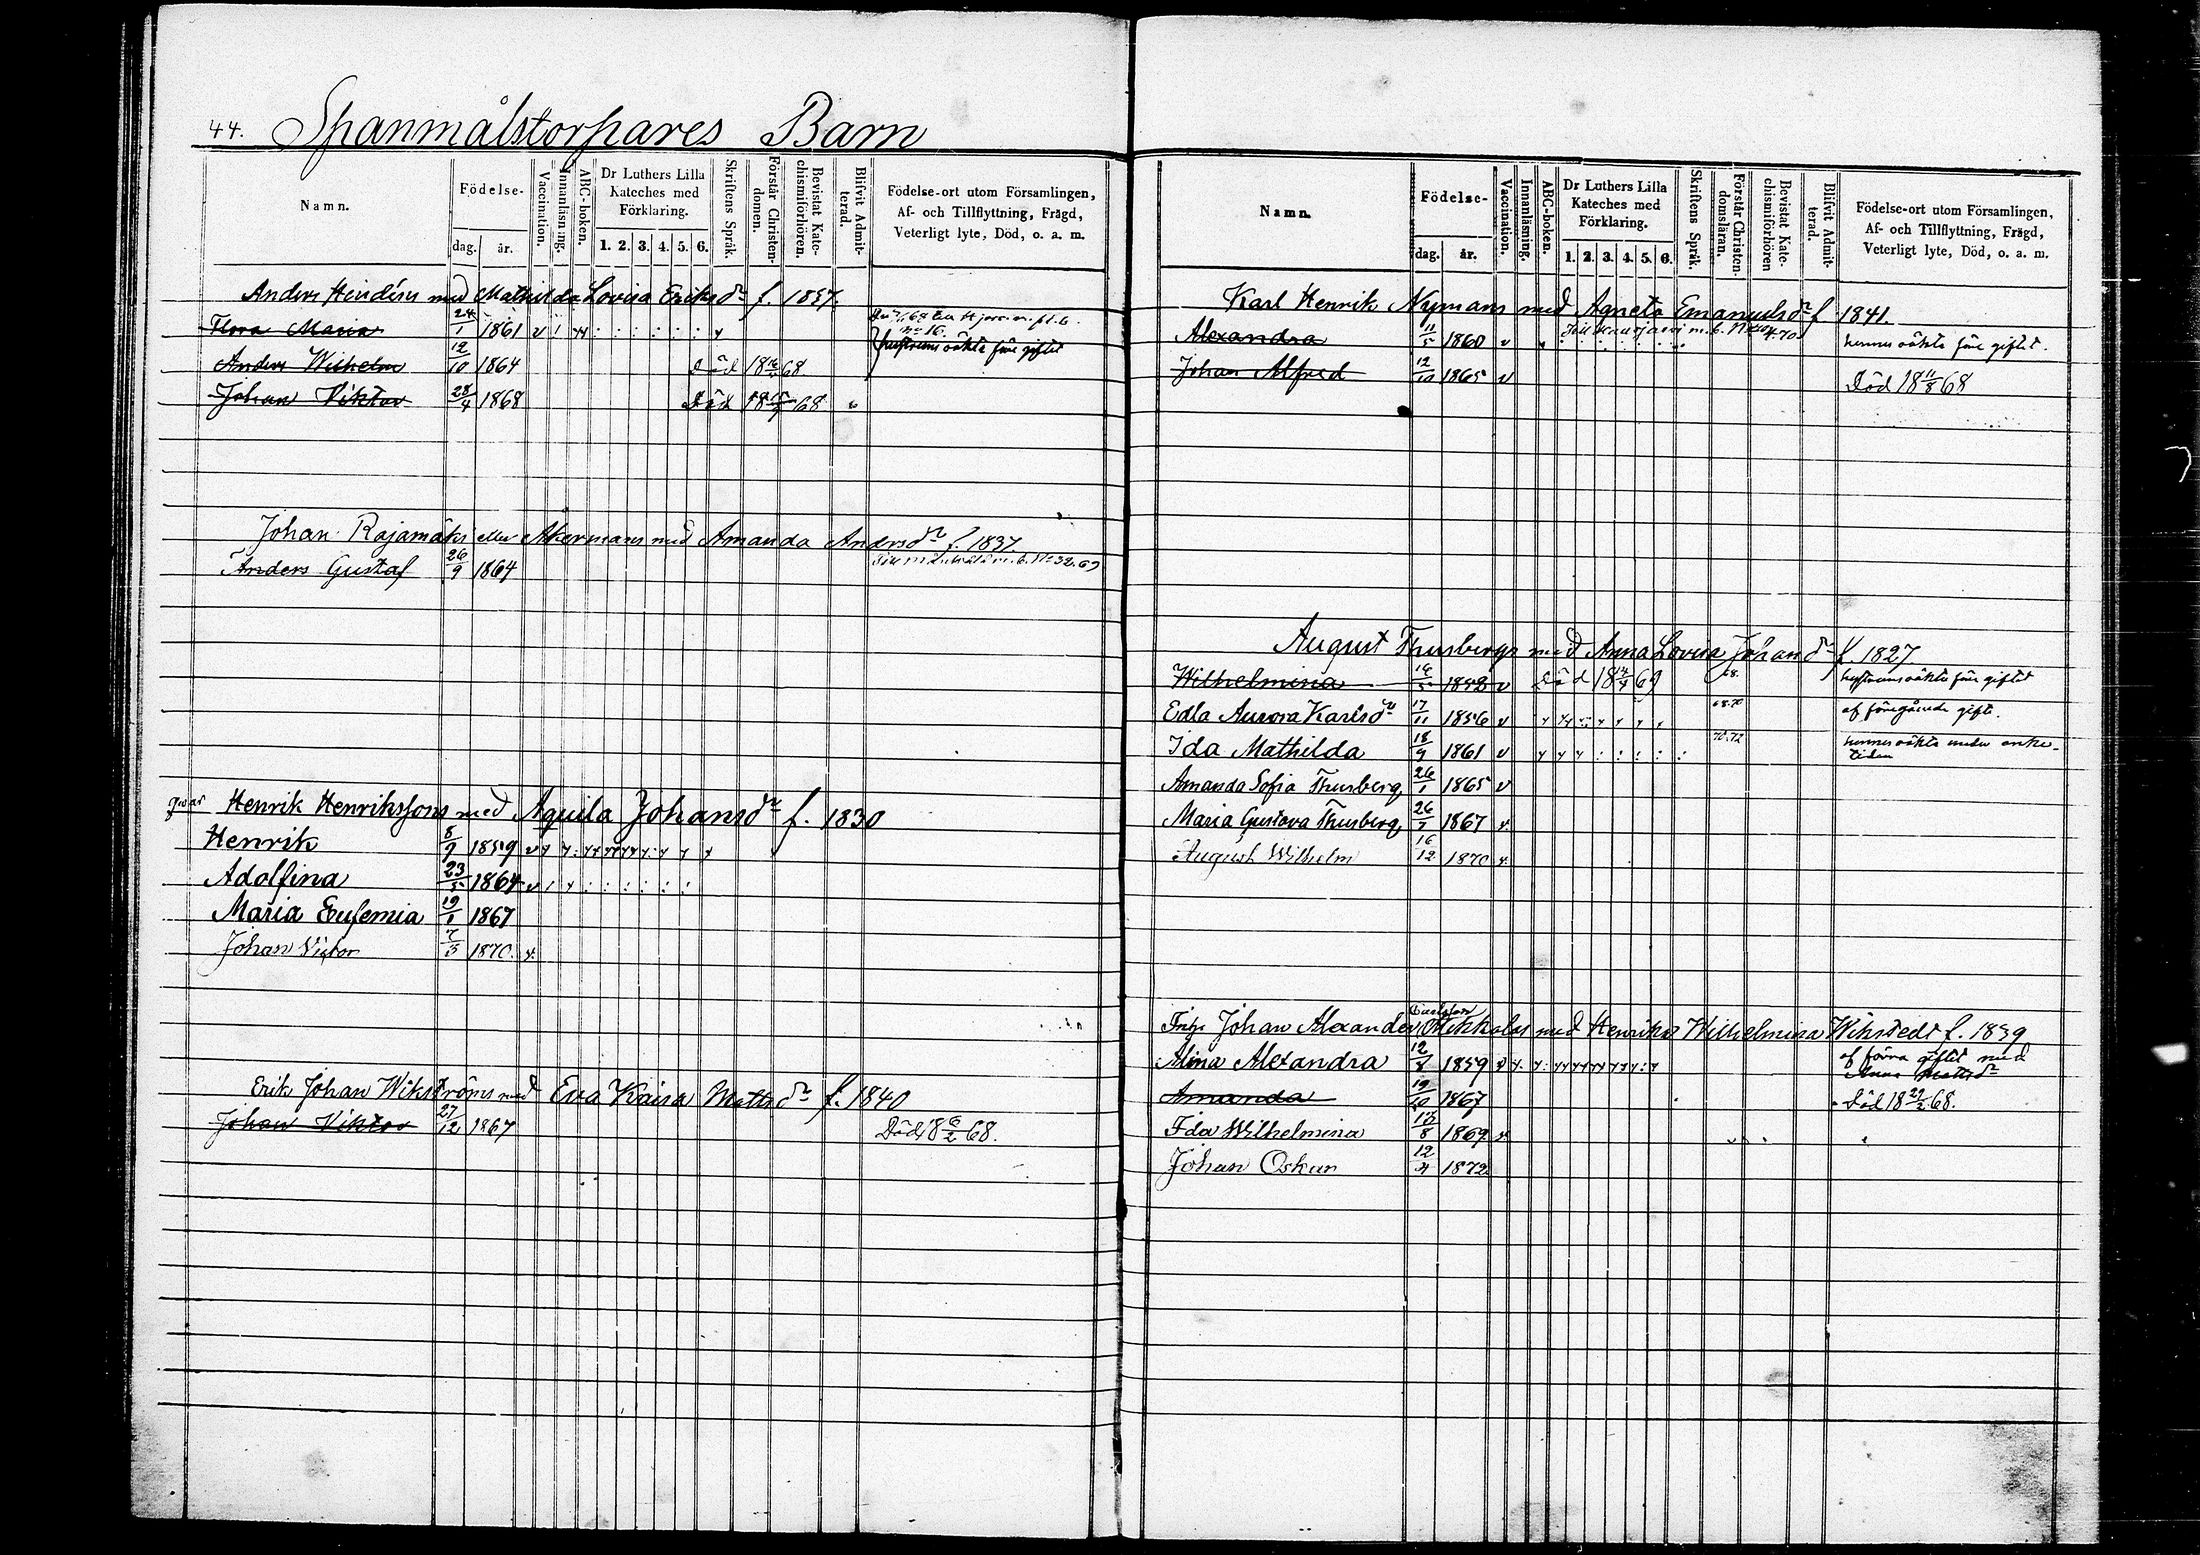 44. Spanmålstorpares Barn
Namn. Födelse- dag. år. Vaccination. Innanläsning. ABC-boken. Dr Luthers Lilla Kateches med Förklaring. 1. 2. 3. 4. 5. 6. Skriftens Språk. Förstår Christendomen. Bevistat Katechismiförhören. Blifvit Admitterad. Födelse-ort utom Församlingen, Af- och Tillflyttning, Frägd, Veterligt lyte, Död, o. a. m.
Anders med Mathilda Lovisa Eriksdr f. 1837.
Flora Maria 24/1 1861 v
hustruns oäkta före giftet
Anders Wilhelm 12/10 1864 Död 18 68.
Johan Viktor 28/4 1868 Död 18 68
Johan Rajamäki eller Åkermans med Amanda Andersdr f. 1837.
Anders Gustaf 26/9 1864
Henrik Henrikssons med Aquila Johansdr f. 1830
Henrik 8/9 1859 v
Adolfina 23/5 1864 v
Maria Eufemia 19/1 1867
Johan Victor 7/5 1870.
Erik Johan Wikströms med Eva Kaisa Mattsdr f. 1840
Johan Viktor 27/12 1867 Död 18 6/2 68.
Namn. Födelse- dag. år. Vaccination. Innanläsning. ABC-boken. Dr Luthers Lilla Kateches med Förklaring. 1. 2. 3. 4. 5. 6. Skriftens Språk. Förstår Christendomsläran. Bevistat Katechismiförhören Blifvit Admitterad. Födelse-ort utom Församlingen, Af- och Tillflyttning, Frägd, Veterligt lyte, Död, o. a. m.
Karl Henrik Nymans med Agneta Emanuelsdr f. 1841.
Alexandra 11/5 1860 v hennes oäkta före giftet.
Johan Alfred 12/10 1865 v Död 18 11/8 68
August Thusbergs med Anna Lovisa Johansdr f. 1827.
Wilhelmina 16/5 1852 v Död 18 69 68. hustruns oäkta före giftet
Edla Aurora Karlsdr 17/11 1856 v 68.70 af föregående gifte.
Ida Mathilda 18/9 1861 v 70.72 hennes oäkta under enke-
tiden
Amanda Sofia Thusberg 26/1 1865 v
Maria Gustava Thusberg 26/7 1867
August Wilhelm 16/12 1870
Johan Alexander Mikkolas med Henrika Wilhelmina Wikstedt f. 1839
Alina Alexandra 12/8 1859 v af förra giftet med
Anna Mattsdr
Amanda 19/10 1867 Död 18 68.
Ida Wilhelmina 1869
Johan Oskar 12/4 1872